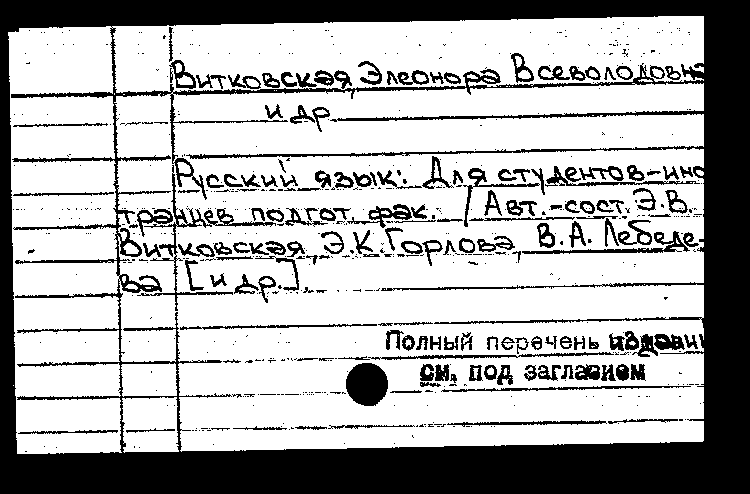 Витковская, Элеонора Всеволодовна
и др.
Русский язык: Для студентов-ино
транцев подгот. фак. / Авт.-сост. Э.В.
Витковская, Э.К. Горлова, В.А. Лебеде-
ва [и др.].
Полный перечень издани
см. под заглавием